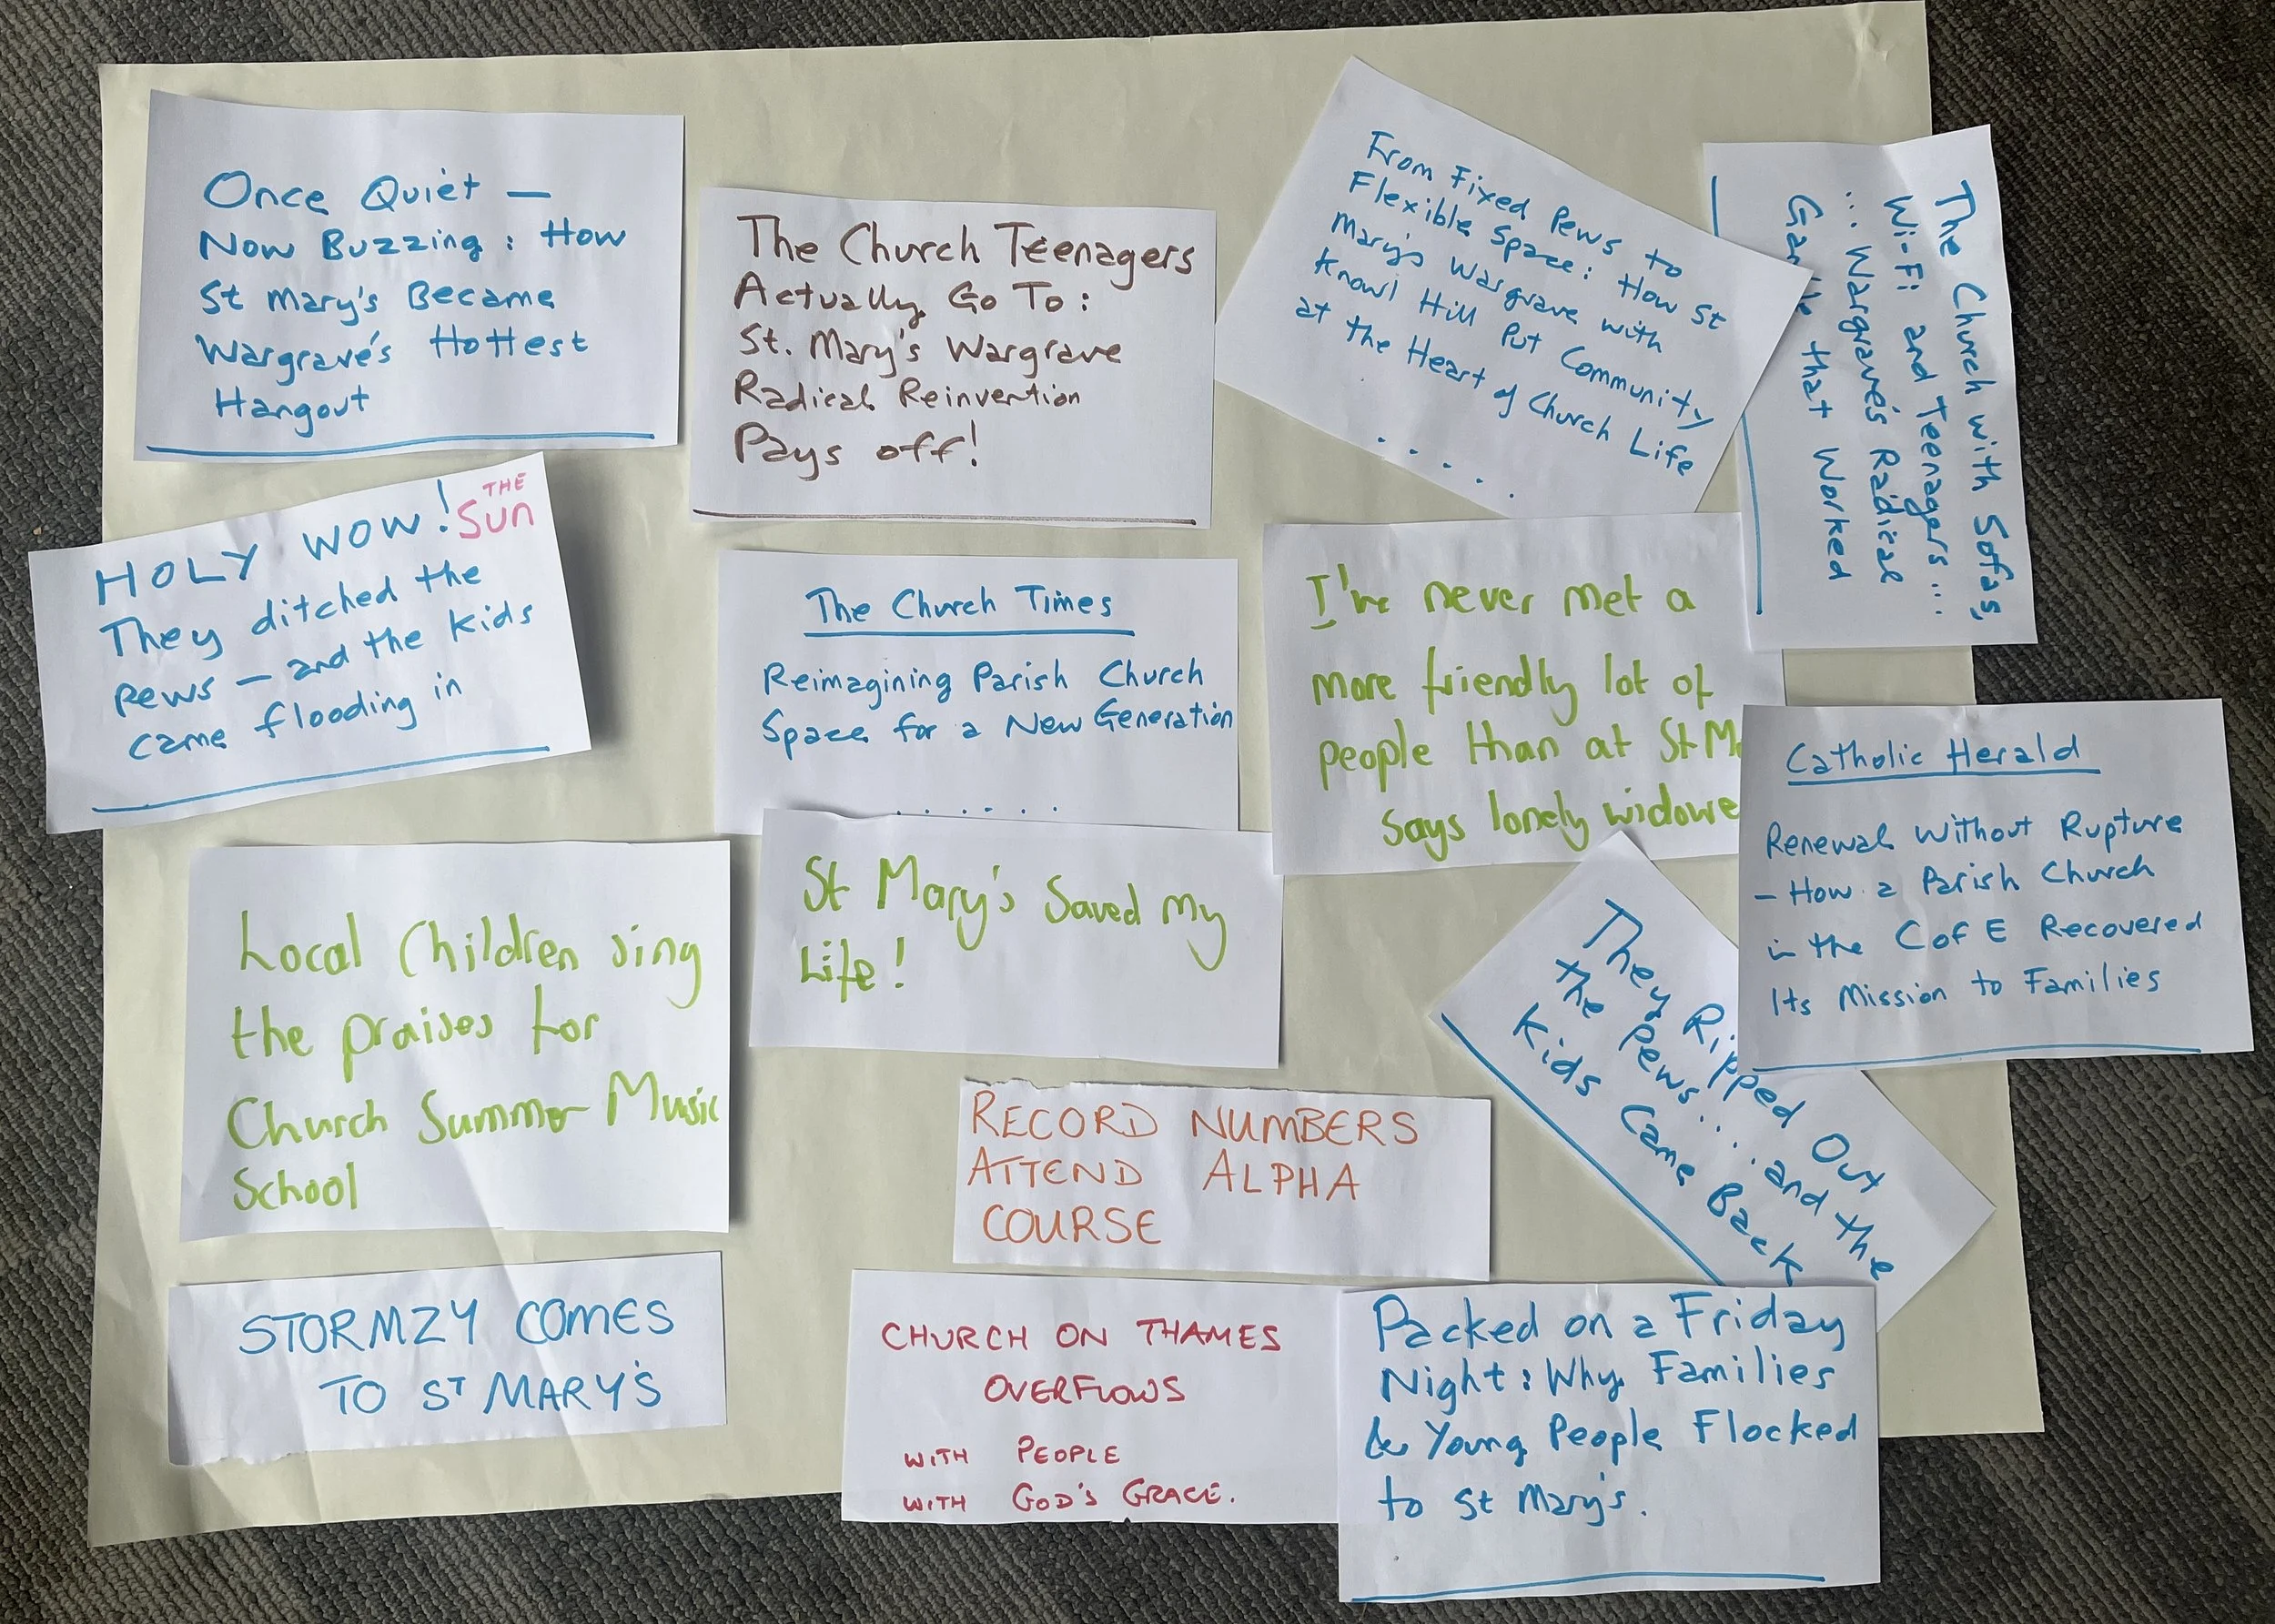 Once Quiet —
Now Buzzing : How
St Mary's Became
Wargrave's Hottest
Hangout
The Church Teenagers
Actually Go To :
St. Mary's Wargrave
Radical Reinvention
Pays off!
From Fixed Pews to
Flexible Space: How St
Mary's Wargrave with
Knowl Hill Put Community
at the Heart of Church Life
. . . . .
The Church with Sofas,
Wi-Fi and Teenagers....
... Wargrave's Radical
that Worked
HOLY WOW!
THE
SUN
They ditched the
Pews — and the kids
came flooding in
The Church Times
Reimagining Parish Church
Space for a New Generation
. . . . . .
I've never met a
more friendly lot of
people than at St M
says lonely widowe
Catholic Herald
Renewal Without Rupture
– How a Parish Church
in the C of E Recovered
Its Mission to Families
Local Children sing
the praises for
Church Summer Music
School
St Mary's Saved My
Life!
They Ripped Out
the Pews.... and the
Kids Came Back
RECORD NUMBERS
ATTEND ALPHA
COURSE
STORMZY COMES
TO ST MARY'S
CHURCH ON THAMES
OVERFLOWS
WITH PEOPLE
WITH GOD'S GRACE.
Packed on a Friday
Night: Why Families
& Young People Flocked
to St Mary's.